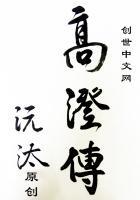 創世中文网
高澄傳
沅汰
原创